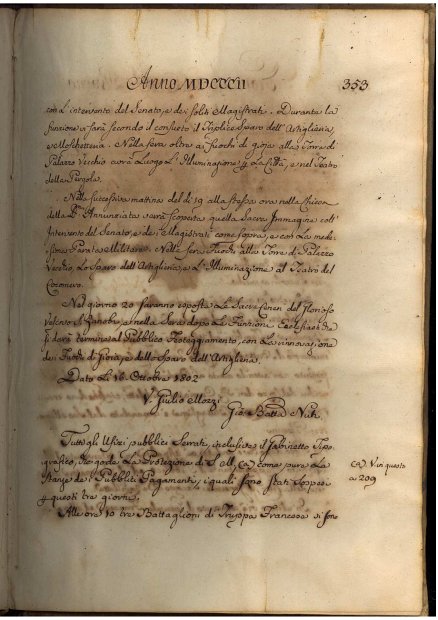 Anno MDCCCII 353
con L'intervento del Senato, e de i soliti Magistrati. Durante la
funzione si farà secondo il consueto il Triplice Sparo dell'Artiglieria,
e Moschetteria. Nella sera oltre ai fuochi di gioja alla Torre di
Palazzo Vecchio avrà Luogo L'Illuminazione p. La Città, e nel Teatro
della Pergola.
Nella successiva mattina del dì 19 alla stessa ora nella Chiesa
della SS. Annunziata sarà scoperta quella Sacra Immagine coll'
Intervento del Senato, e de i Magistrati come sopra, e con La mede-
sima Parata Militare. Nella Sera Fuochi alla Torre di Palazzo
Vecchio, Lo Sparo dell'Artiglieria, e L'Illuminazione al Teatro del
Cocomero.
Nel giorno 20 saranno esposte Le Sacre Ceneri del glorioso
Vescovo S. Zanobi, e nella Sera dopo Le Funzioni Ecclesiastiche
si darà termine al Pubblico Festeggiamento, con La rinnovazione
dei Fuochi di Gioia, e dello Sparo dell'Artiglieria.
Dato Li 16. Ottobre 1802
V. Giulio Mozzi
Gio. Batta Nuti
Tutti gli Ufizi pubblici Serrati, inclusive il Gabinetto Tipo-
grafico, che gode La Protezione di S. M. (a) come pure La
Stanze dei Pubblici Pagamenti, i quali sono stati Sospesi
p. questi tre giorni.
(a) V. in questo
a 209
Alle ore 10 tre Battaglioni di Truppa Francese si sono